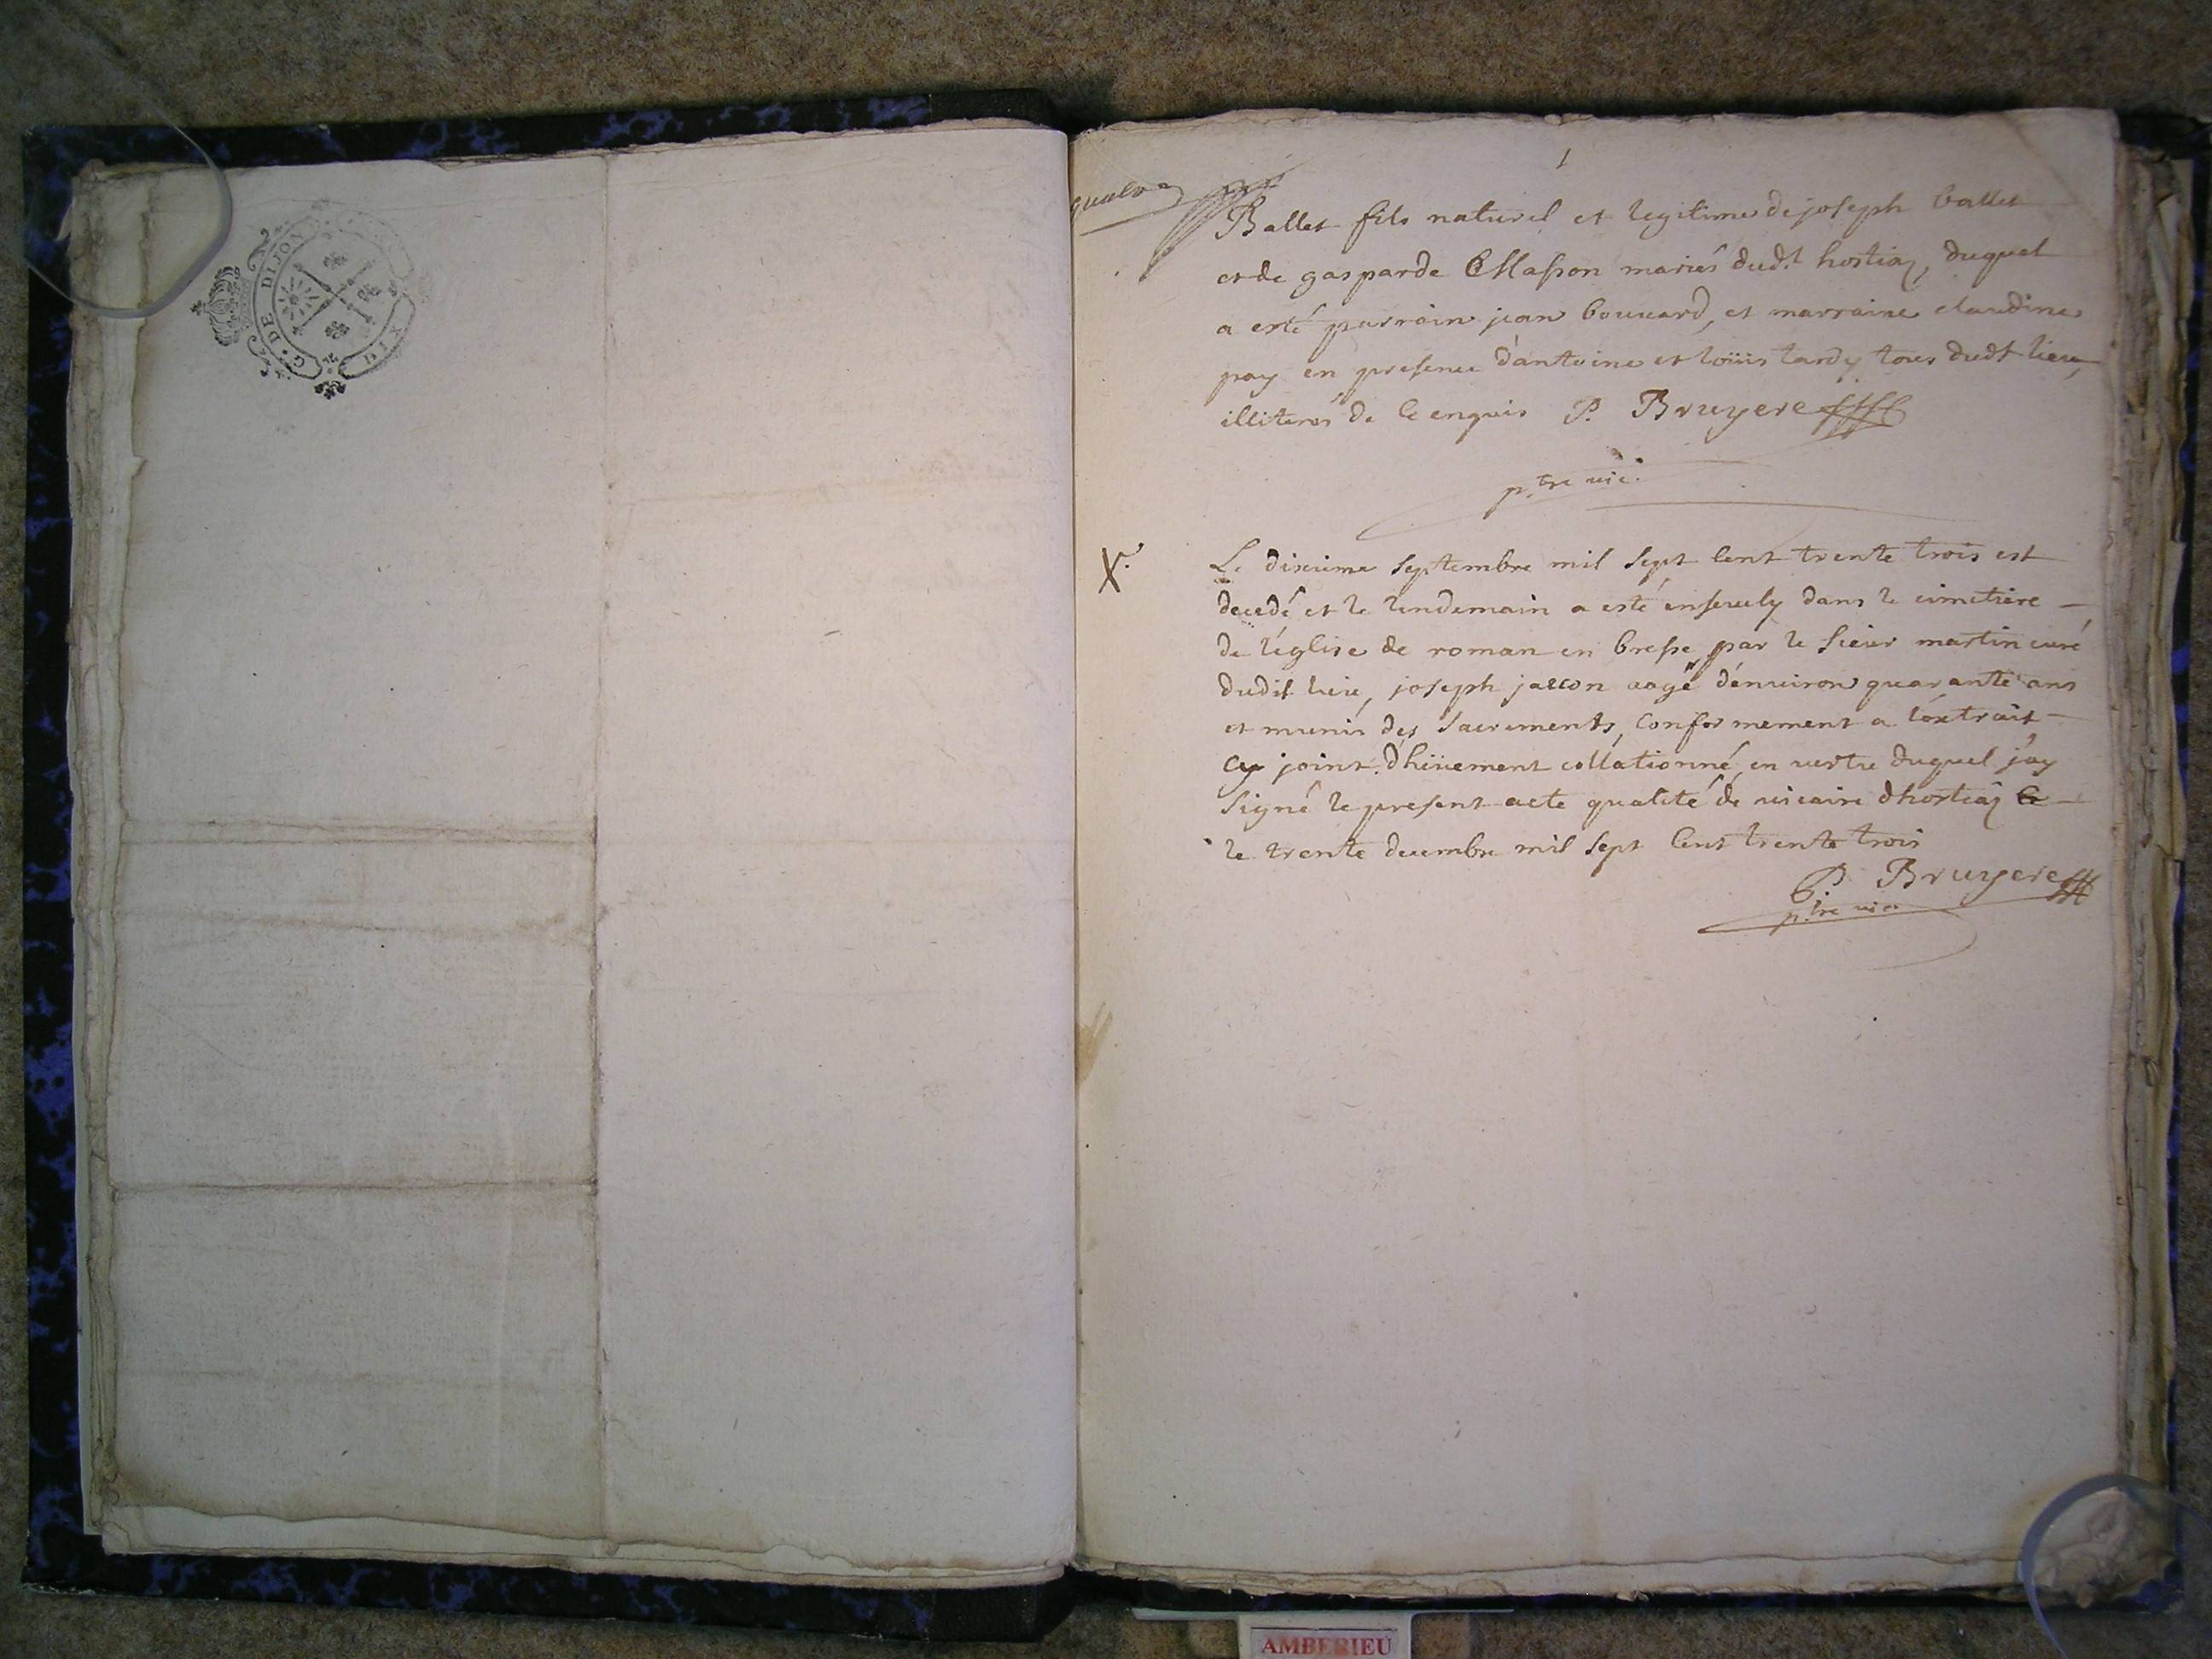 G. DE DIJON
DIX
1
Ballet fils naturel et legitime de joseph ballet
et de gasparde Masson mariés dud.t hostiaz, duquel
a esté parrain jean bouvard, et marraine claudine
pay en presence d'antoine et loüis tardy tous dudt lieu,
illiterés de ce enquis P. Bruyere
p.tre vic.
X.
Le dixieme septembre mil sept cent trente trois est
decedé et le lendemain a esté ensevely dans le cimetiere
de l'église de roman en bresse par le sieur martin curé
dudit lieu, joseph jallon aagé d'environ quarante ans
et munis des sacrements, conformement a l'extrait
cy joint d'hüement collationné, en vertu duquel j'ay
signé le present acte qualité de vicaire d'hostiaz
le trente decembre mil sept cent trente trois
P. Bruyere
p.tre vic
AMBERIEU